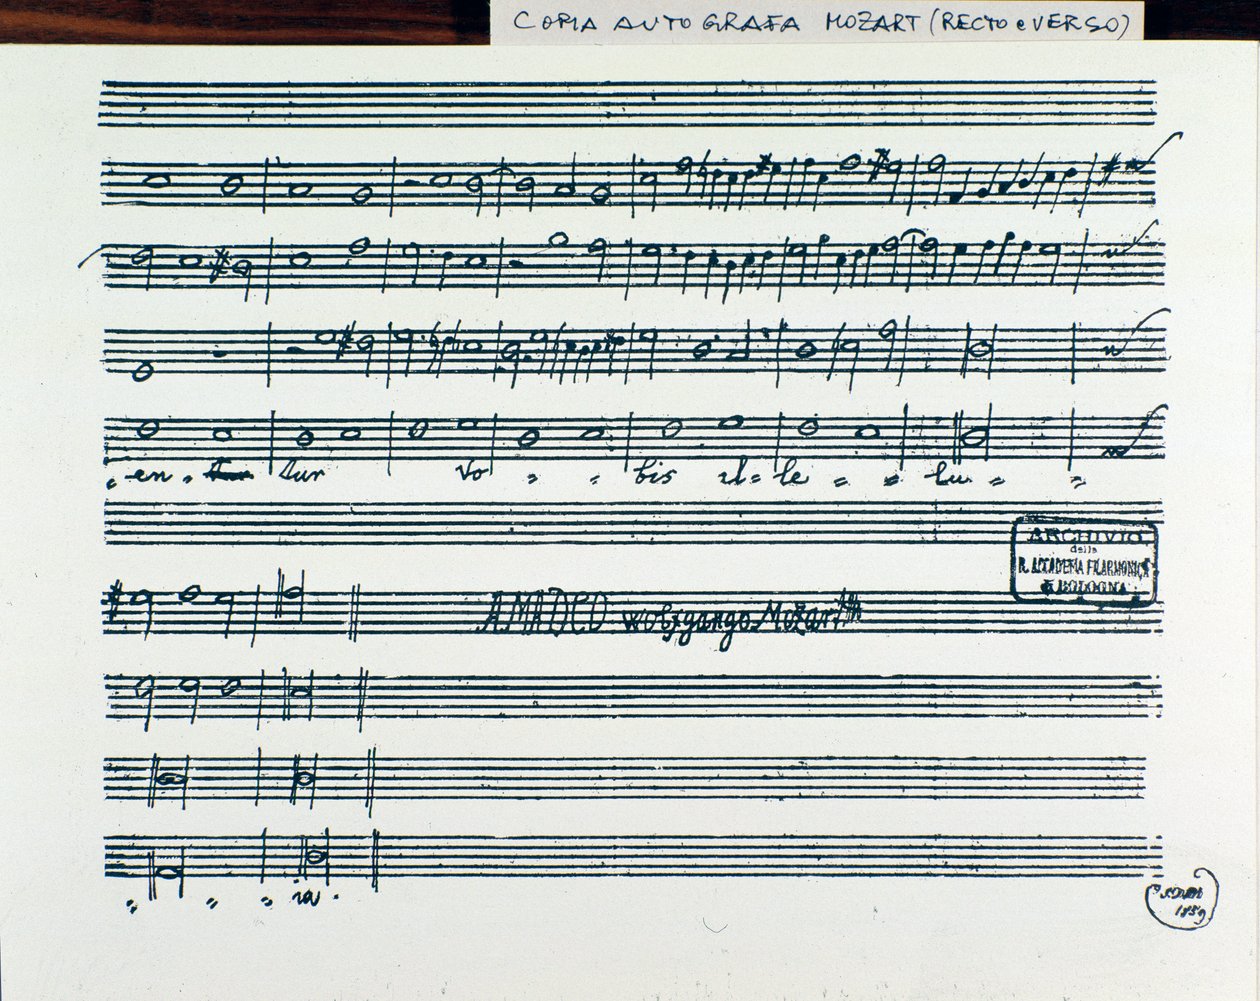 COPIA AUTOGRAFA MOZART (RECTO e VERSO)
en - tur Vo = = bis al = le = = lu = =
ARCHIVIO
della
R. ACCADEMIA FILARMONICA
di BOLOGNA
AMADEO Wolfgango Mozart
= = = ia .
1859